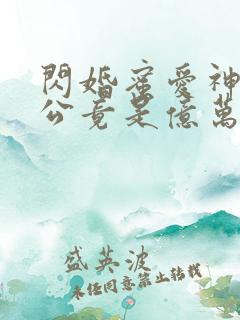 閃婚蜜愛神
公竟是億萬
盛英波
未經同意禁止轉載